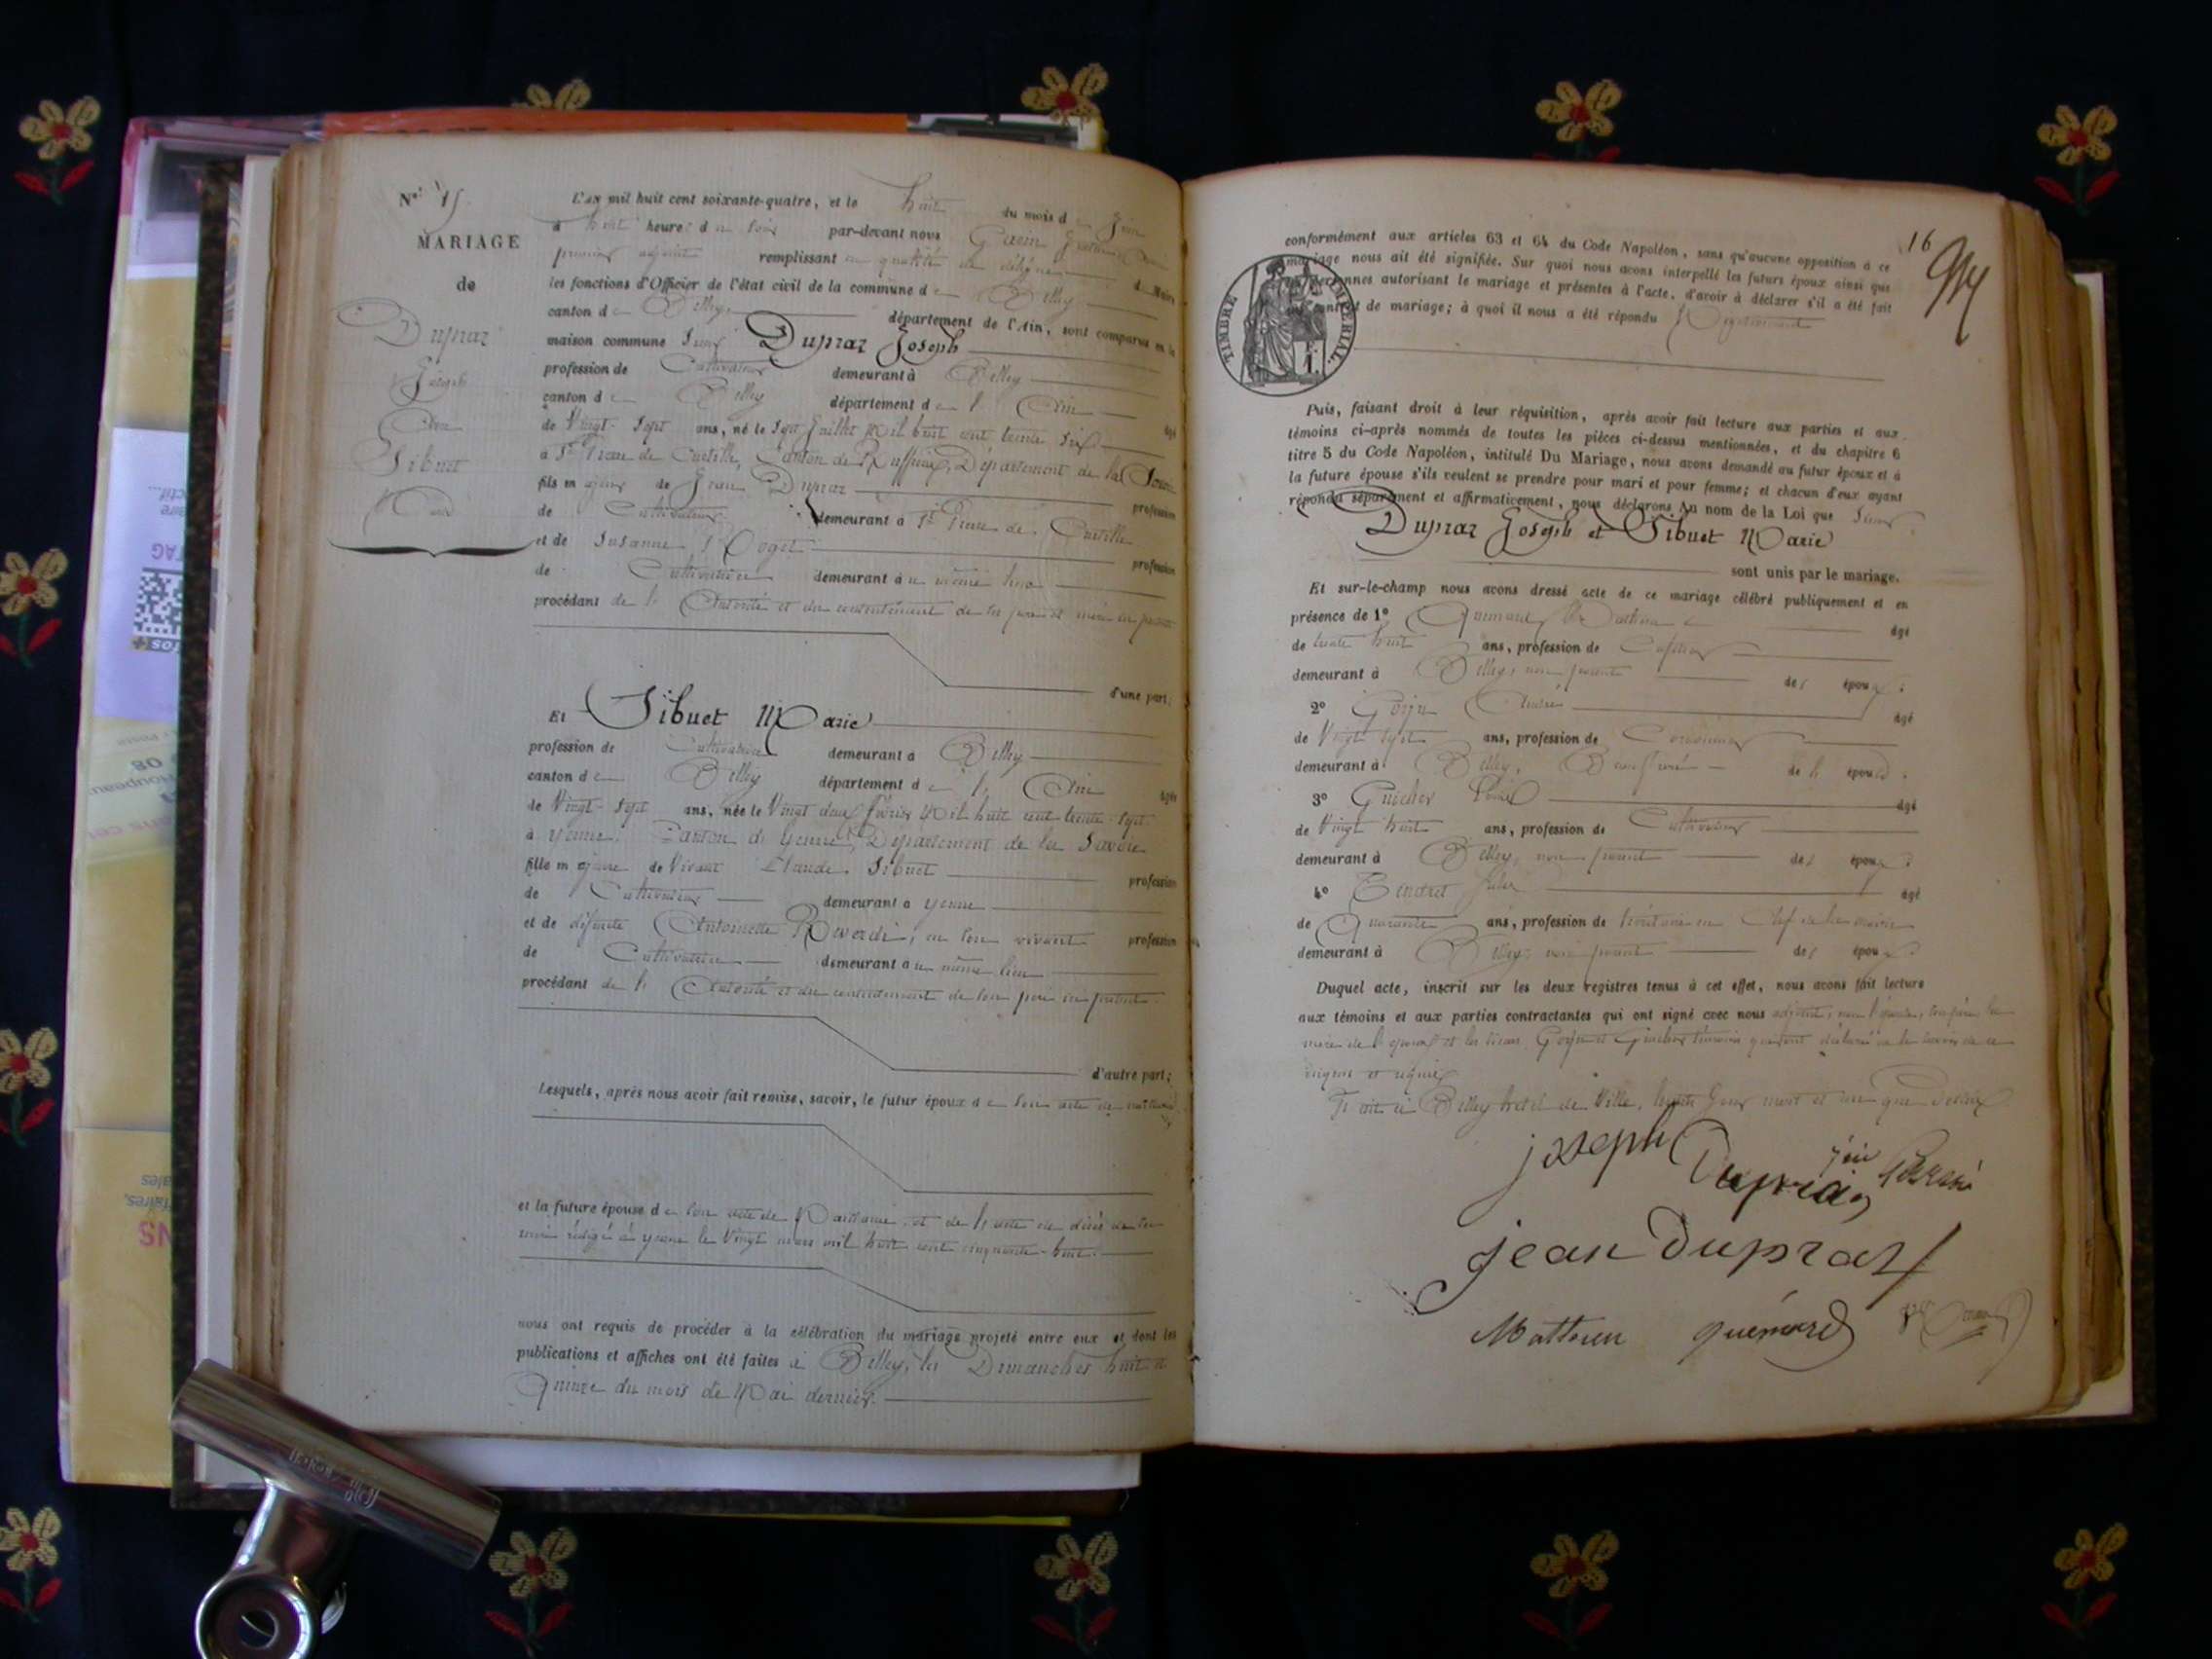 N° 15
MARIAGE
de
Dupraz
Joseph
Avec
Sibuet
Marie
L'AN mil huit cent soixante-quatre, et le huit du mois de Juin
à huit heures du soir par-devant nous
premier adjoint remplissant en qualité de délégué du Maire
les fonctions d'Officier de l'état civil de la commune de Belley
canton de Belley, département de l'Ain, sont comparus en la
maison commune Sieur Dupraz Joseph
profession de Cultivateur demeurant à Belley
canton de Belley département de l'Ain âgé
de Vingt-Sept ans, né le Sept Juillet Mil huit cent trente Six
à St Pierre de Curtille, Canton de Ruffieux, Département de la Savoie
fils majeur de Jean Dupraz profession
de Cultivateur demeurant à St Pierre de Curtille
et de Susanne profession
de Cultivatrice demeurant au même lieu
procédant de l'Autorité et du consentement de ses père et mère ici présents
d'une part;
Et Sibuet Marie
profession de Cultivatrice demeurant à Belley
canton de Belley département de l'Ain âgée
de Vingt-Sept ans, née le Vingt deux Février Mil huit cent trente-Sept
à Yenne, Canton de Yenne, Département de la Savoie
fille majeure de Vivant Claude Sibuet profession
de Cultivateur demeurant à Yenne
et de défunte Antoinette Reverdi, en son vivant profession
de Cultivatrice demeurant au même lieu
procédant de l'Autorité et du consentement de son père ici présent
d'autre part;
Lesquels, après nous avoir fait remise, savoir, le futur époux de son acte de naissance
et la future épouse de son acte de Naissance et de l'acte de décès de sa
mère rédigé à Yenne le Vingt mars mil huit cent cinquante-huit
nous ont requis de procéder à la célébration du mariage projeté entre eux et dont les
publications et affiches ont été faites à Belley, les Dimanches huit et
Quinze du mois de Mai dernier.
16
conformément aux articles 63 et 64 du Code Napoléon, sans qu'aucune opposition à ce
mariage nous ait été signifiée. Sur quoi nous avons interpellé les futurs époux ainsi que
les personnes autorisant le mariage et présentes à l'acte, d'avoir à déclarer s'il a été fait
un contrat de mariage; à quoi il nous a été répondu Négativement
TIMBRE IMPÉRIAL.
Puis, faisant droit à leur réquisition, après avoir fait lecture aux parties et aux
témoins ci-après nommés de toutes les pièces ci-dessus mentionnées, et du chapitre 6
titre 5 du Code Napoléon, intitulé Du Mariage, nous avons demandé au futur époux et à
la future épouse s'ils veulent se prendre pour mari et pour femme; et chacun d'eux ayant
répondu séparément et affirmativement, nous déclarons Au nom de la Loi que Sieur
Dupraz Joseph et Sibuet Marie
sont unis par le mariage.
Et sur-le-champ nous avons dressé acte de ce mariage célébré publiquement et en
présence de 1° Quimard Mathieu âgé
de trente huit ans, profession de
demeurant à Belley, non parent des époux;
2° Gojon André âgé
de Vingt sept ans, profession de Cordonnier
demeurant à Belley, Beau frère de l'époux;
3° Guicher Louis âgé
de Vingt huit ans, profession de Cultivateur
demeurant à Belley, non parent des époux;
4° Tendret âgé
de Quarante ans, profession de Secrétaire en Chef de la mairie
demeurant à Belley, non parent des époux.
Duquel acte, inscrit sur les deux registres tenus à cet effet, nous avons fait lecture
aux témoins et aux parties contractantes qui ont signé avec nous adjoint, non l'épouse, son père, la
mère de l'époux et les Sieurs Gojon et Guicher témoins qui ont déclaré ne le savoir de ce
enquis et requis
Fait à Belley hôtel de Ville, lesdits Jour, mois et an que dessus
joseph Dupraz
jean Duprat
Mathieu quémard